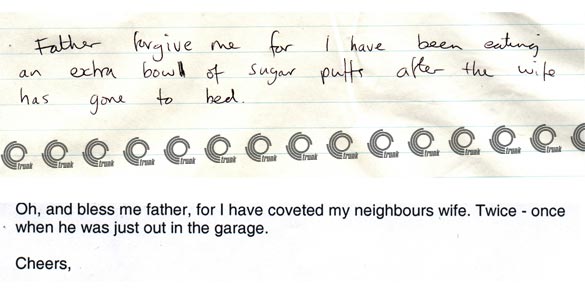 Father forgive me for I have been eating
an extra bowl of sugar puffs after the wife
has gone to bed.
trunk trunk trunk trunk trunk trunk trunk trunk trunk trunk trunk trunk trunk trunk
Oh, and bless me father, for I have coveted my neighbours wife. Twice - once
when he was just out in the garage.
Cheers,